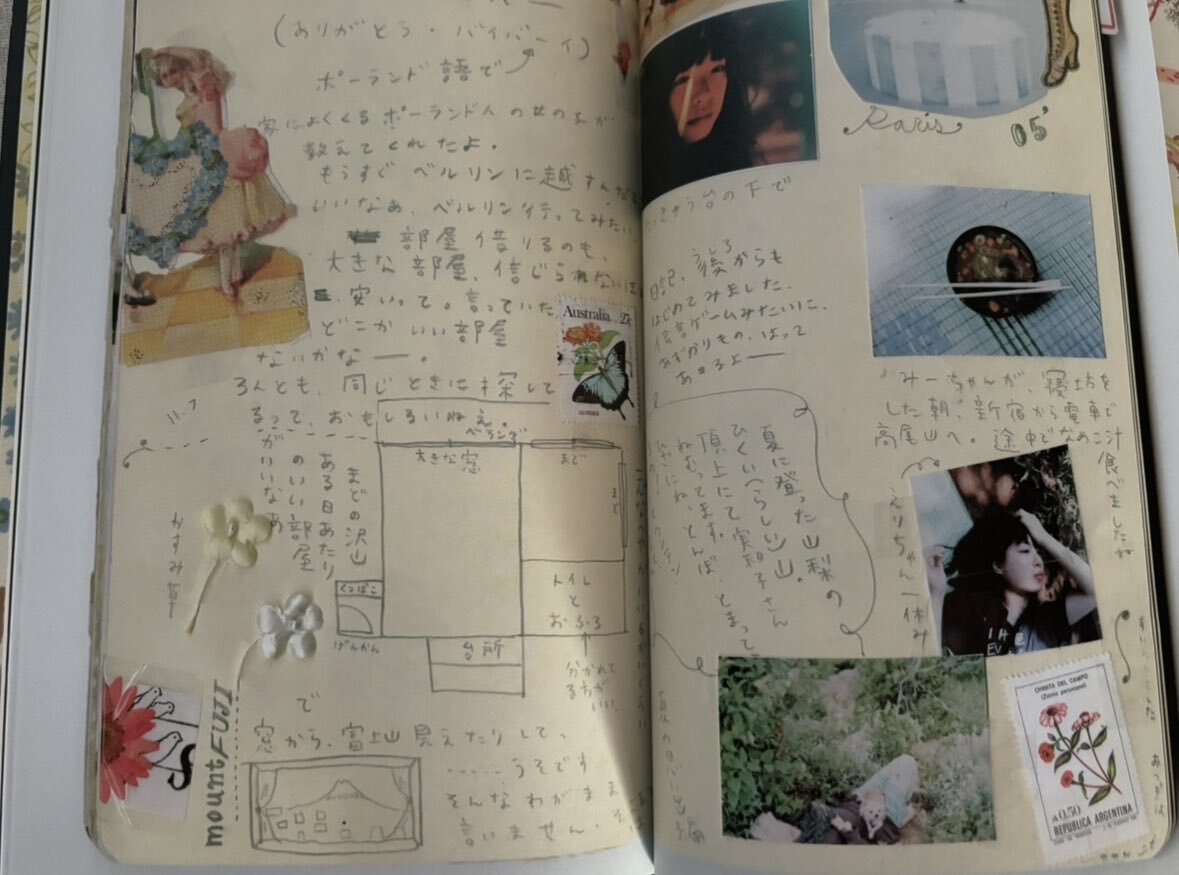 (ありがとう・バイバーイ)
ポーランド語で
家によくくるポーランド人の女の子が、
教えてくれたよ。
もうすぐベルリンに越すんだ
いいなあ、ベルリン行ってみたい
部屋借りるのも、
大きな部屋、信じられないほ
安いって。言っていた
どこかいい部屋
ないかなー。
3人とも、同じときに探して
るって、おもしろいねえ。
11.7
まどの沢山
ある日あたり
のいい部屋
がいいなあ
かすみ草
ベランダ
大きな窓
まど
まど
トイレ
と
おふろ
くつばこ
げんかん
台所
分かれて
るほうが
いい。
で
窓から、富士山見えたりして、
……うそです
そんなわがまま
言いません、そ
mount FUJI
Australia 27c
ULYSSES
Paris
05'
台の下で
日記、後からも
うしろ
はじめてみました、
伝言ゲームみたいに、
あずかりもの、はって
あるよー
みーちゃんが、寝坊を
した朝、新宿から電車で
高尾山へ。途中でなめこ汁
食べましたね
えりちゃん一休み
夏に登った山梨の
ひくい(らしい)山。
頂上にて実和子さん
ねむってます。
とんぼ、とまって
CHINITA DEL CAMPO
(Zinnia peruviana)
A0,50
REPUBLICA ARGENTINA